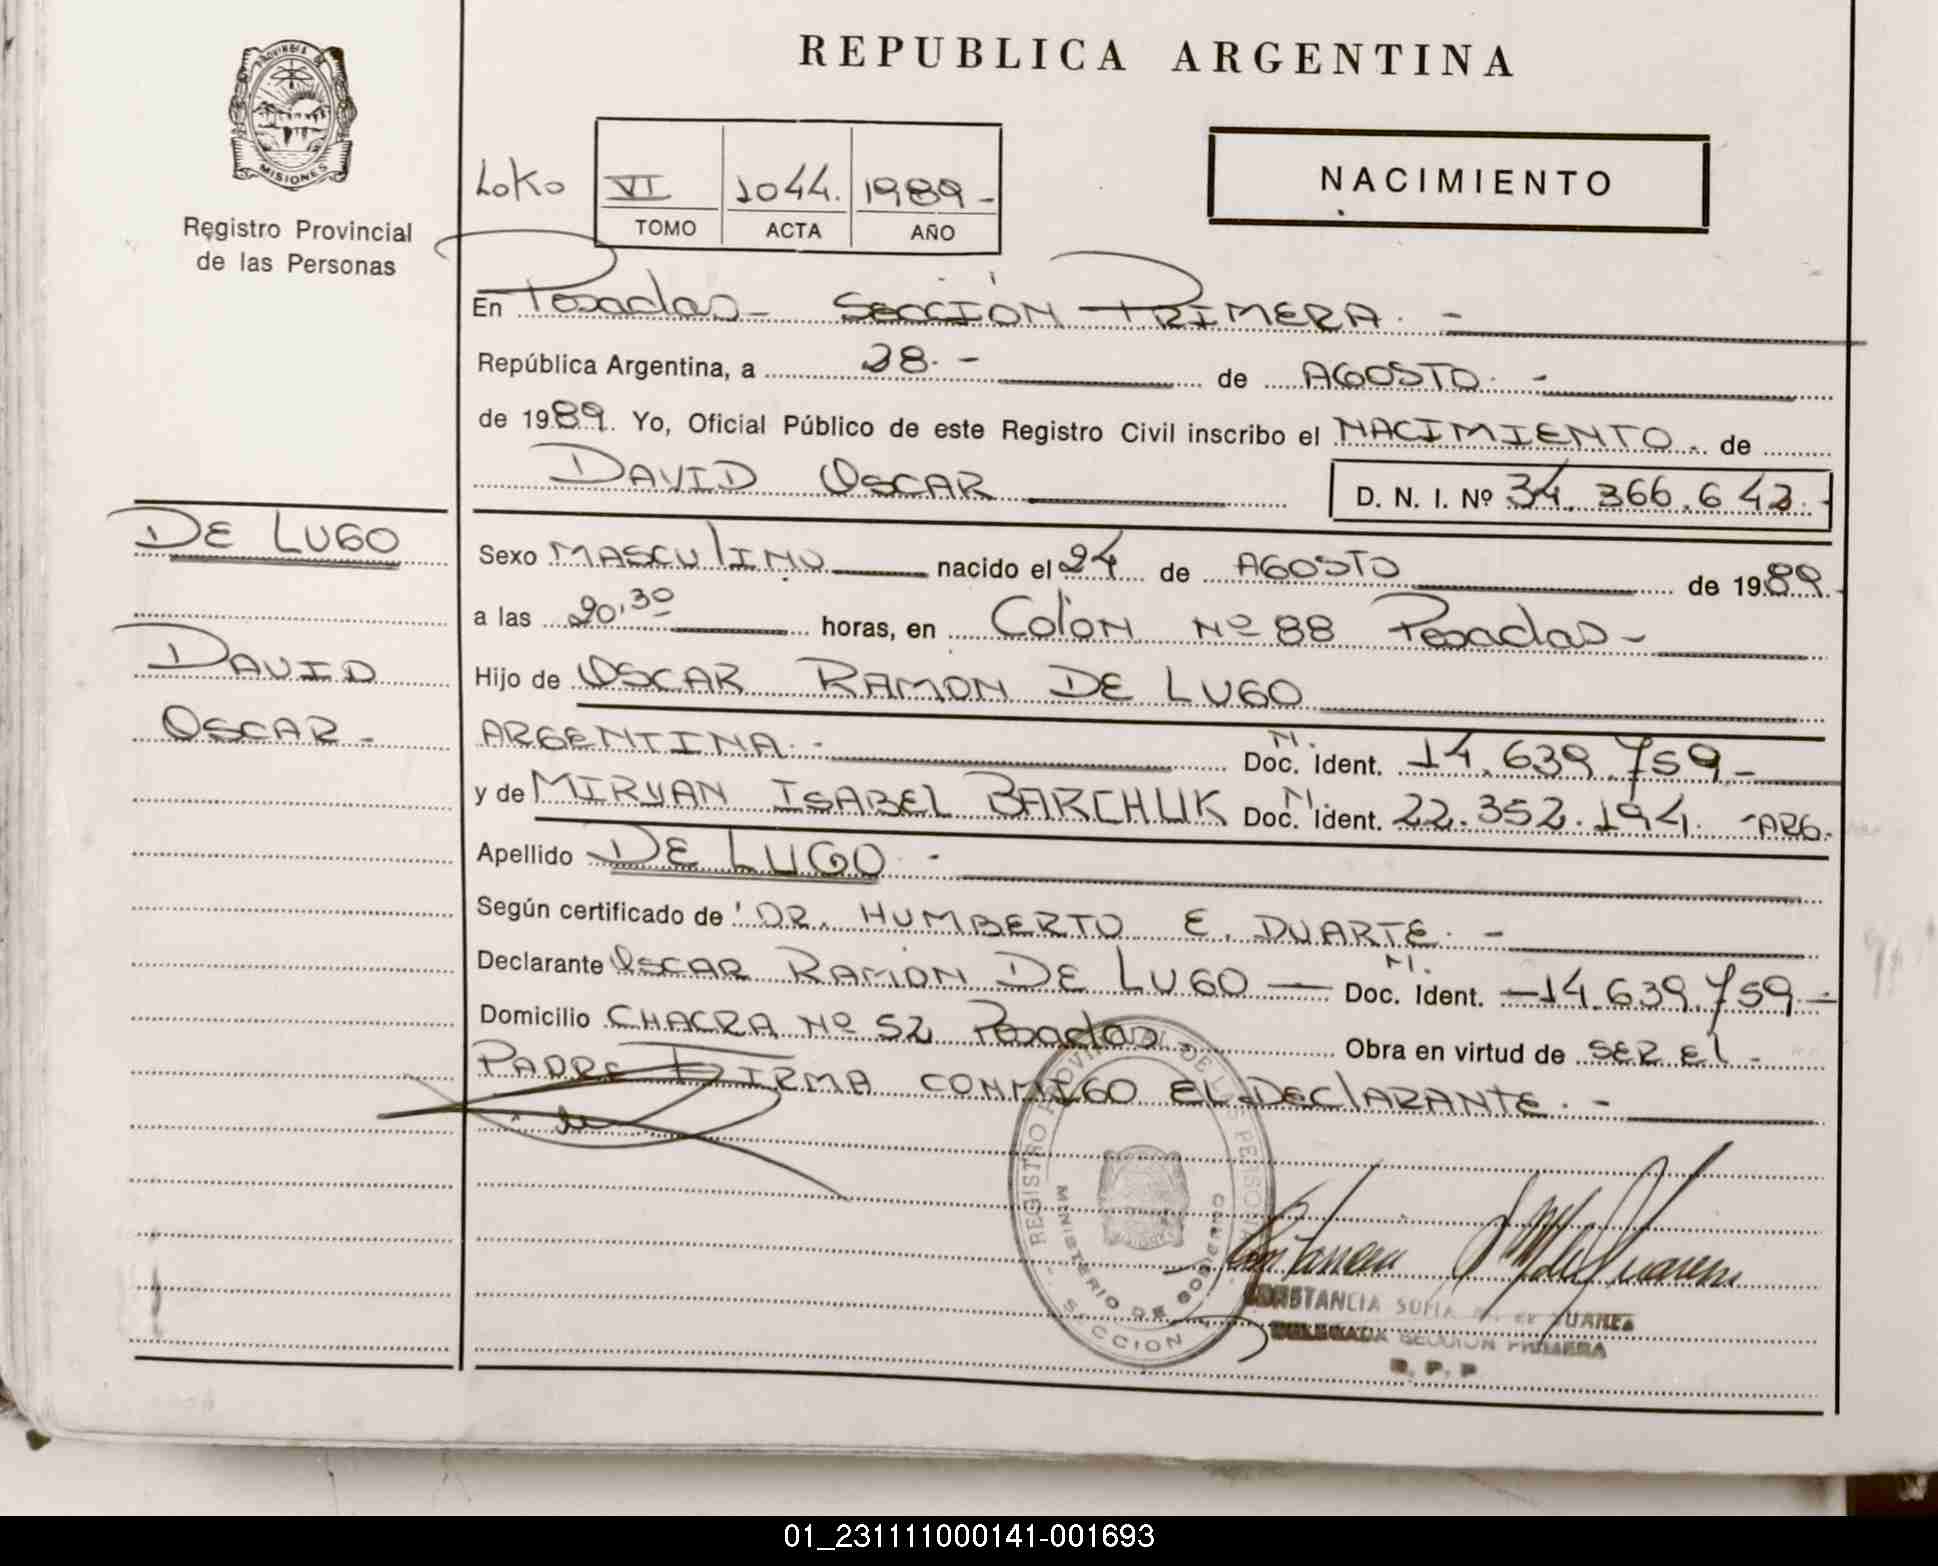 REPUBLICA ARGENTINA
PROVINCIA DE
MISIONES
Registro Provincial
de las Personas
VI 1044. 1989-
TOMO ACTA AÑO
NACIMIENTO
En Posadas- SECCIÓN PRIMERA. -
República Argentina, a 28.- de AGOSTO. -
de 1989. Yo, Oficial Público de este Registro Civil inscribo el NACIMIENTO. de
DAVID OSCAR D. N. I. Nº 34.366.643.-
DE LUGO
DAVID
OSCAR -
Sexo MASCULINO nacido el 24 de AGOSTO de 1989.
a las 20,30 horas, en Colón Nº 88 Posadas-
Hijo de OSCAR RAMON DE LUGO
ARGENTINA.- Doc. N. Ident. 14.639.759-
y de MIRYAN ISABEL BARCHUK Doc. N. Ident. 22.352.194. -ARG.
Apellido DE LUGO. -
Según certificado de DR. HUMBERTO E. DUARTE. -
Declarante OSCAR RAMÓN DE LUGO — Doc. N. Ident. -14.639.759.-
Domicilio CHACRA Nº 52 Posadas. Obra en virtud de SER EL.
PADRE FIRMA CONMIGO EL DECLARANTE. -
REGISTRO PROVINCIAL DE LAS PERSONAS
MINISTERIO DE GOBIERNO
SECCION
CONSTANCIA SOFIA DE SUAREZ
DELEGADA SECCION PRIMERA
R. P. P
01_231111000141-001693